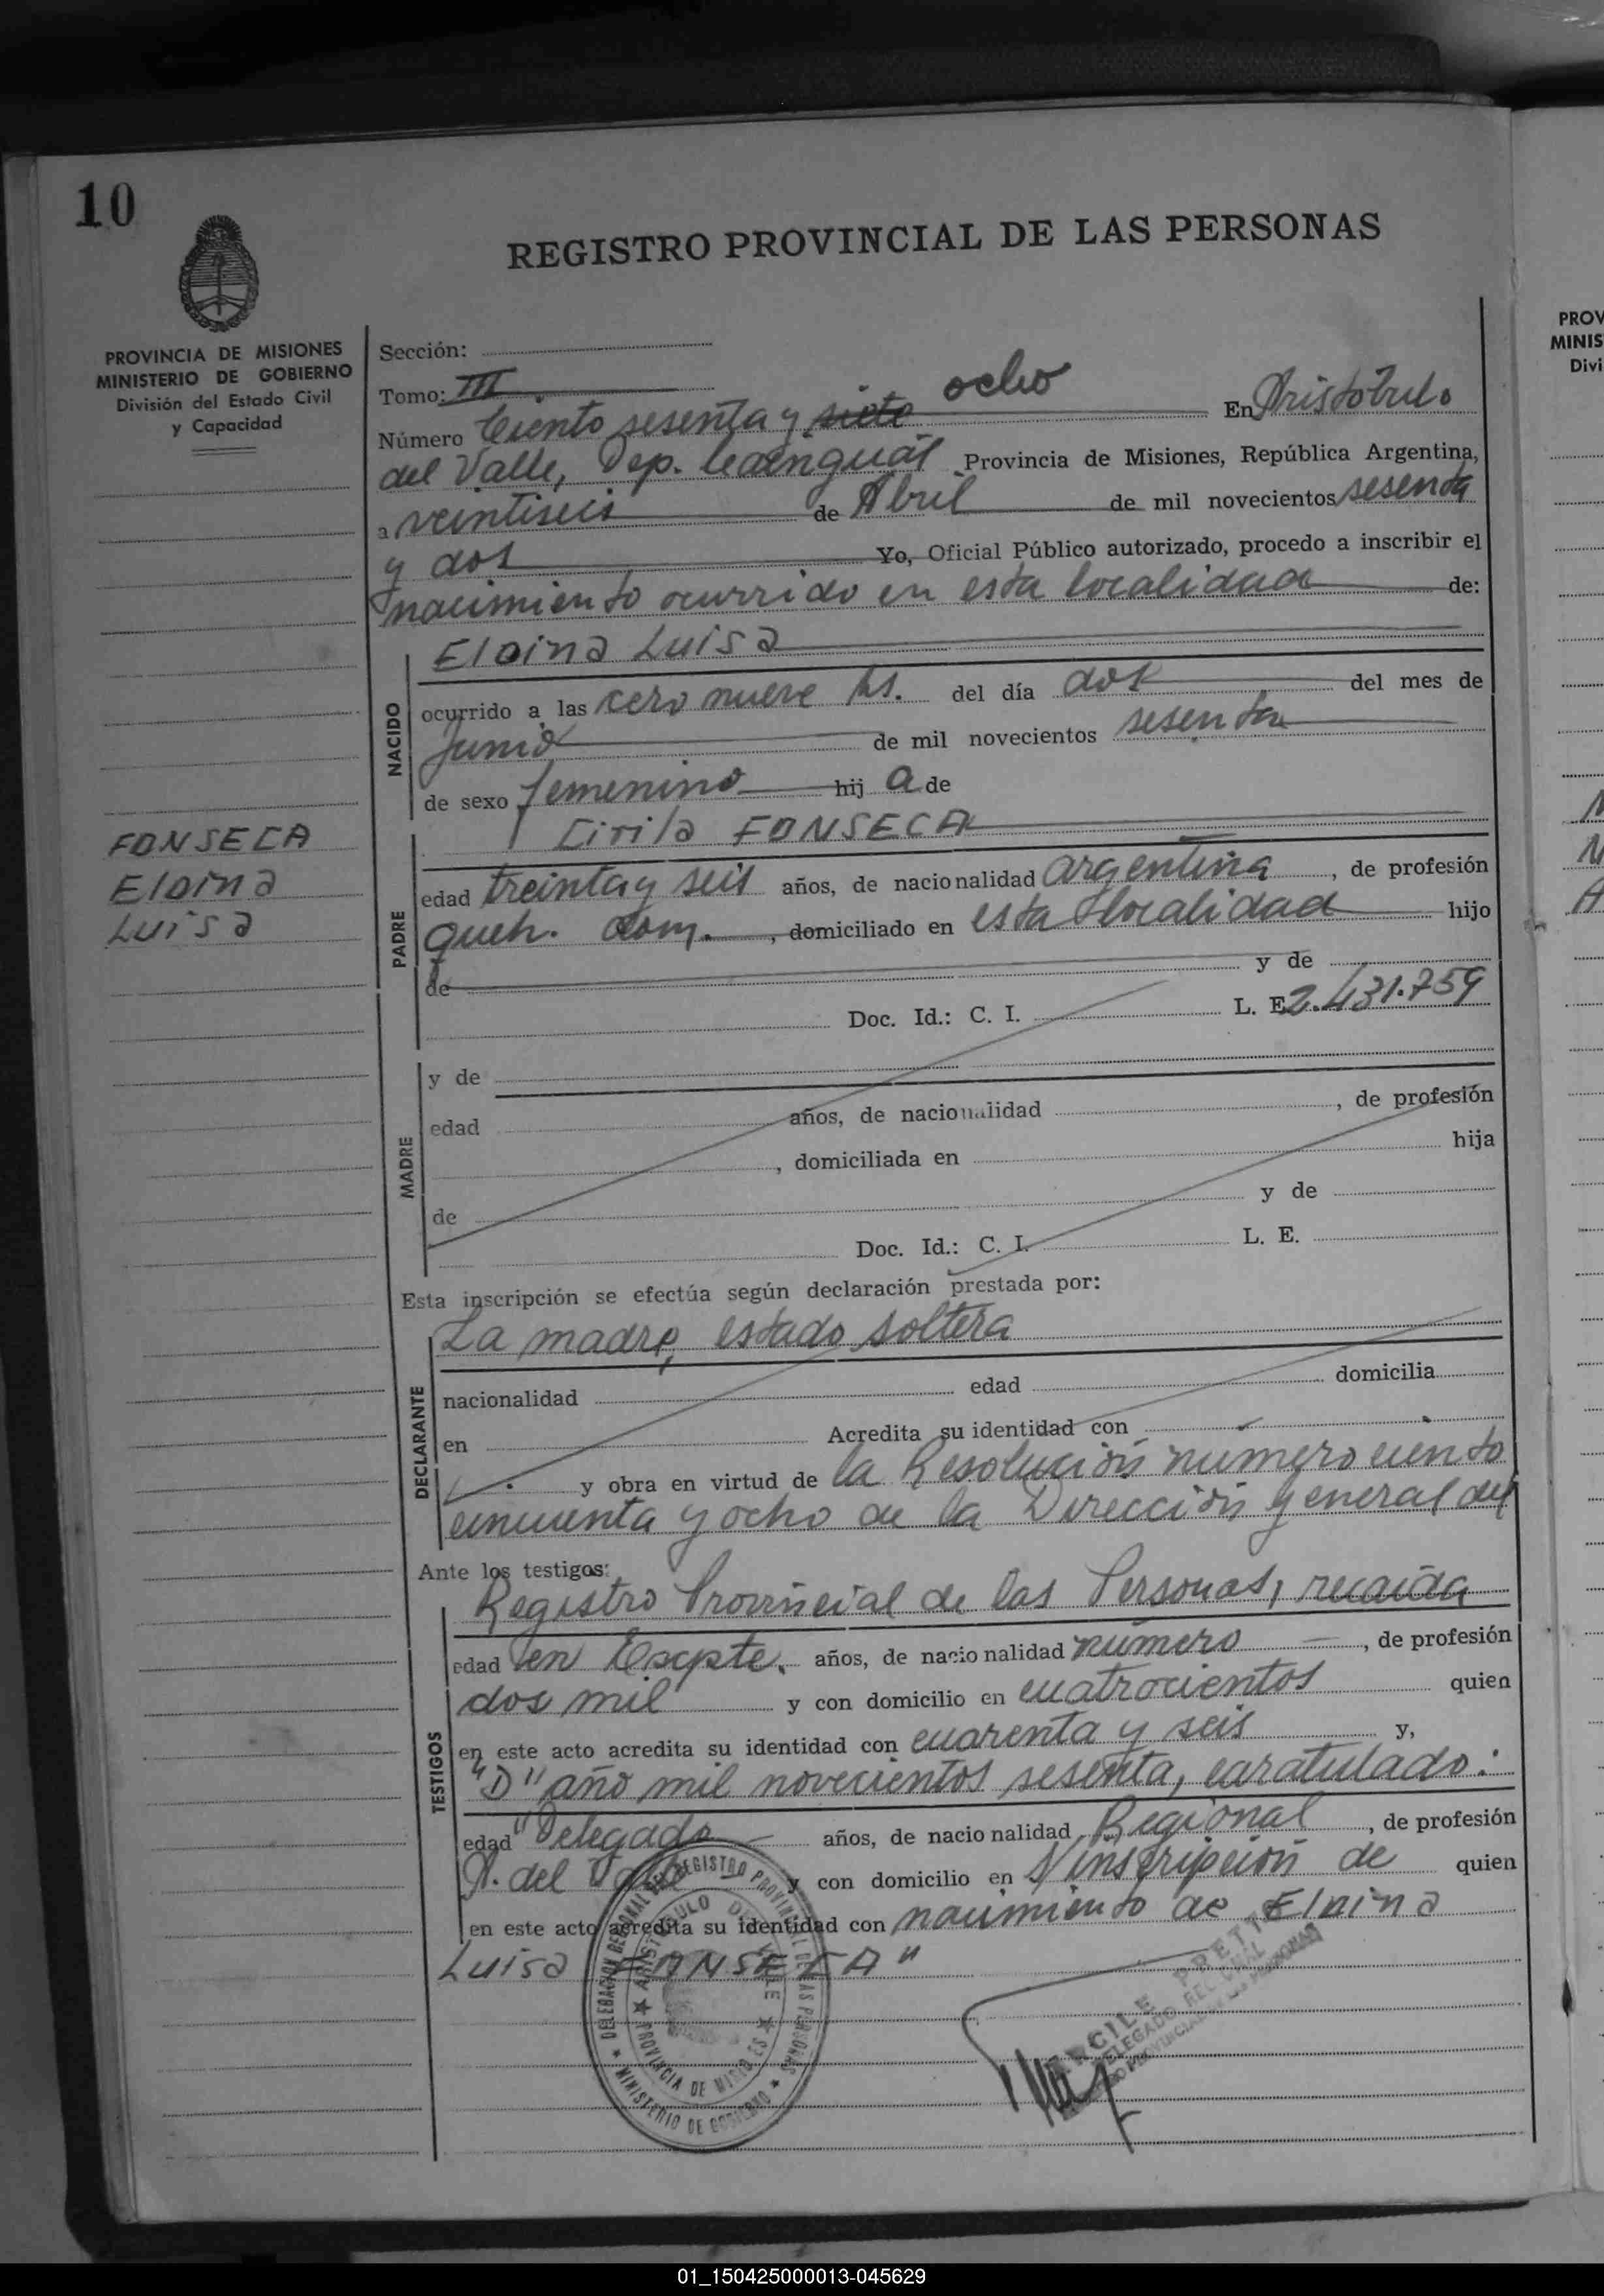 10
REGISTRO PROVINCIAL DE LAS PERSONAS
PROVINCIA DE MISIONES
MINISTERIO DE GOBIERNO
División del Estado Civil
y Capacidad
Sección:
Tomo: III
Número Ciento sesenta y siete ocho En Aristóbulo
del Valle, Dep. Cainguás Provincia de Misiones, República Argentina,
a veintiseis de Abril de mil novecientos sesenta
y dos Yo, Oficial Público autorizado, procedo a inscribir el
nacimiento ocurrido en esta localidad de:
NACIDO
Eloina Luisa
ocurrido a las cero nueve hs. del día dos del mes de
Junio de mil novecientos sesenta
de sexo femenino hij a de
FONSECA
Eloina
Luisa
PADRE
Cirila FONSECA
edad treinta y seis años, de nacionalidad argentina, de profesión
queh. dom., domiciliado en esta localidad hijo
de y de
Doc. Id.: C. I. L. E. 2.431.759
MADRE
y de
edad años, de nacionalidad , de profesión
, domiciliada en hija
de y de
Doc. Id.: C. I. L. E.
Esta inscripción se efectúa según declaración prestada por:
DECLARANTE
La madre, estado soltera
nacionalidad edad domicilia
en Acredita su identidad con
y obra en virtud de la Resolución número ciento
cincuenta y ocho de la Dirección General del
Ante los testigos:
TESTIGOS
Registro Provincial de las Personas, recaída
edad en Expte. años, de nacionalidad número , de profesión
dos mil y con domicilio en cuatrocientos quien
en este acto acredita su identidad con cuarenta y seis y,
"D" año mil novecientos sesenta, caratulado:
edad "Delegado años, de nacionalidad Regional , de profesión
A. del Valle y con domicilio en s/inscripción de quien
en este acto acredita su identidad con nacimiento de Eloina
Luisa FONSECA"
DELEGACION REGIONAL DEL REGISTRO PROVINCIAL DE LAS PERSONAS
ARISTOBULO DEL VALLE
PROVINCIA DE MISIONES
MINISTERIO DE GOBIERNO
DELEGADO REGIONAL
PROV
MINIS
Divi
01_150425000013-045629